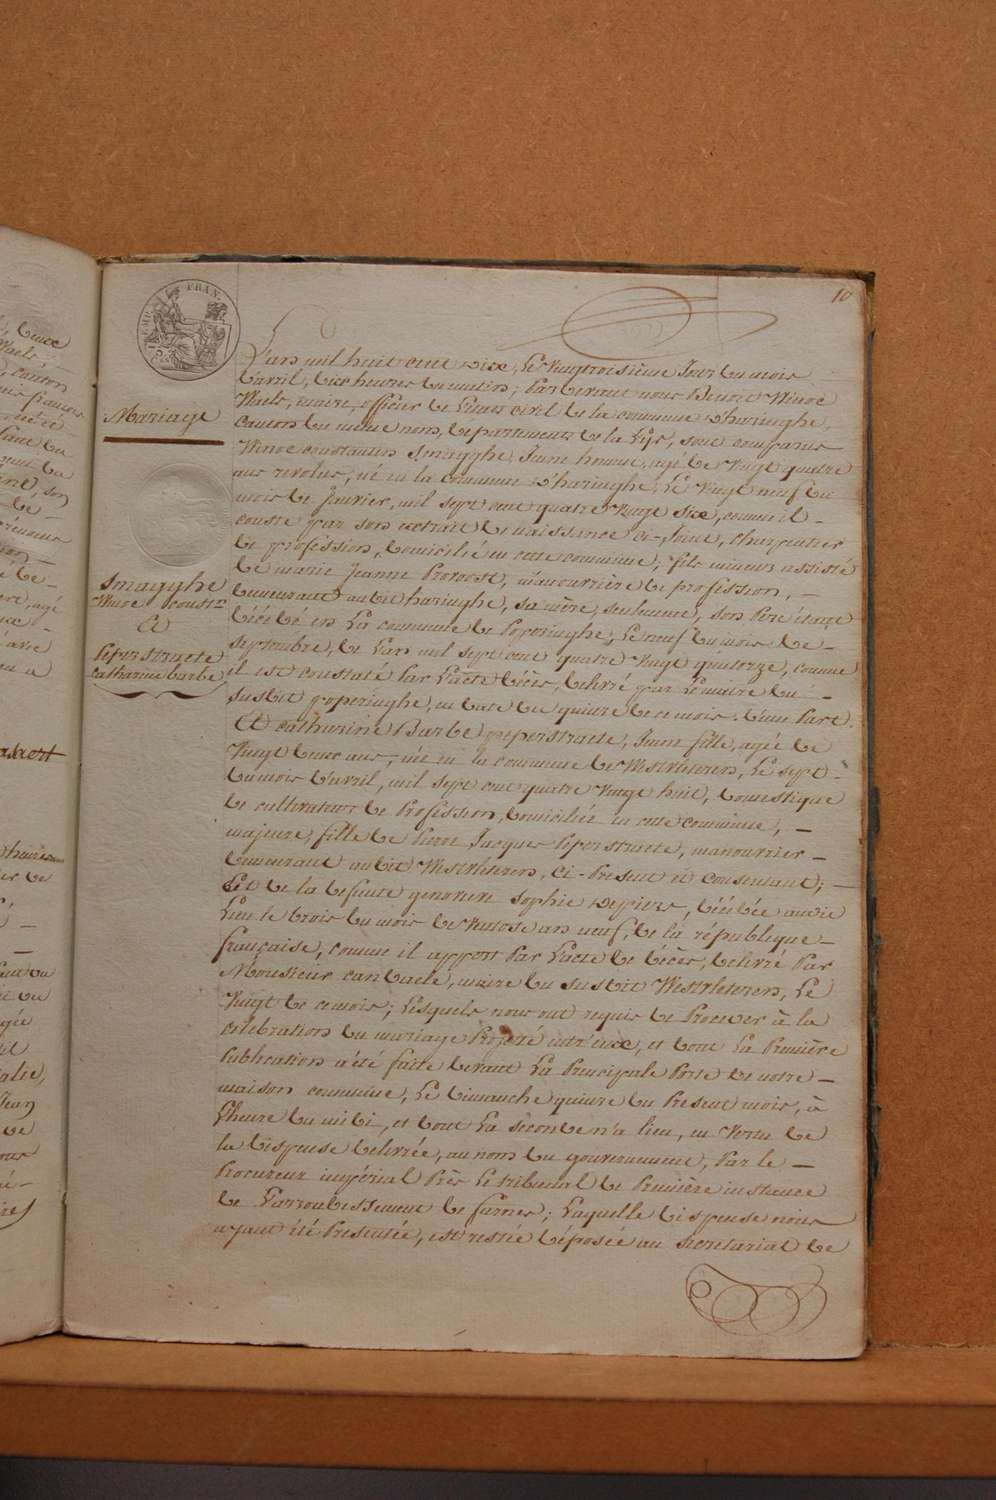 10
Mariage
Smagghe
Winoc const.n
Et
Peperstraete
Catharine barbe
L'an mil huit cent dix, Le vingt troisième Jour du mois
d'avril, dix heures du matin; Pardevant nous Benoit Winoc
Waels, maire, officier de L'état civil de la commune d'haringhe,
canton du même nom, département de la Lÿs, sont comparus
Winoc constantin Smagghe, Jeune homme, agé de vingt quatre
ans revolus, né en la commune d'haringhe, Le vingt neuf du
mois de Janvier, mil sept cent quatre vingt six, comme il -
conste par son extrait de naissance ci-Joint, charpentier
de proféssion, domicilié en cette commune, fils mineur assisté
de marie Jeanne Provoost, manouvrière de profession, -
demeurant audit haringhe, sa mère, seulement, son Pere étant
décédé en La commune de Poperinghe, Le neuf du mois de -
septembre, de L'an mil sept cent quatre vingt quatorze, comme
il est constaté Par L'acte décès, delivré par Le maire du -
susdit poperinghe, en date du quinze de ce mois. d'une Part.
Et catharine Barbe peperstraete, Jeune fille, agée de
vingt deux ans, née en la commune de Westvleteren, Le sept -
du mois d'avril, mil sept cent quatre vingt huit, domestique
de cultivateur de Profession, domiciliée en cette commune, -
majeure, fille de Pierre Jacques Peperstraete, manouvrier -
demeurant audit Westvleteren, ci-Present et consentant; -
Et de la defunte genoveve sophie Depiers, décédée audit
Lieu le trois du mois de ventose an neuf, de la république -
française, comme il appert Par L'acte de décès, delivré Par
Monsieur vandaele, maire du susdit Westvleteren, Le
vingt de ce mois; Lesquels nous ont requis de Proceder à la
célébration du mariage Projetté entr'eux, et dont La Première
Publication a été faite devant La Principale Porte de notre -
maison commune, Le dimanche quinze du Present mois, à
L'heure du midi, et dont La seconde n'a lieu, en vertu de
la dispense delivrée, au nom du gouvernement, Par le -
Procureur impérial Près Le tribunal de Première instance
de L'arrondissement de furnes; Laquelle dispense nous
ayant été Presentée, est restée déposée au secretariat de